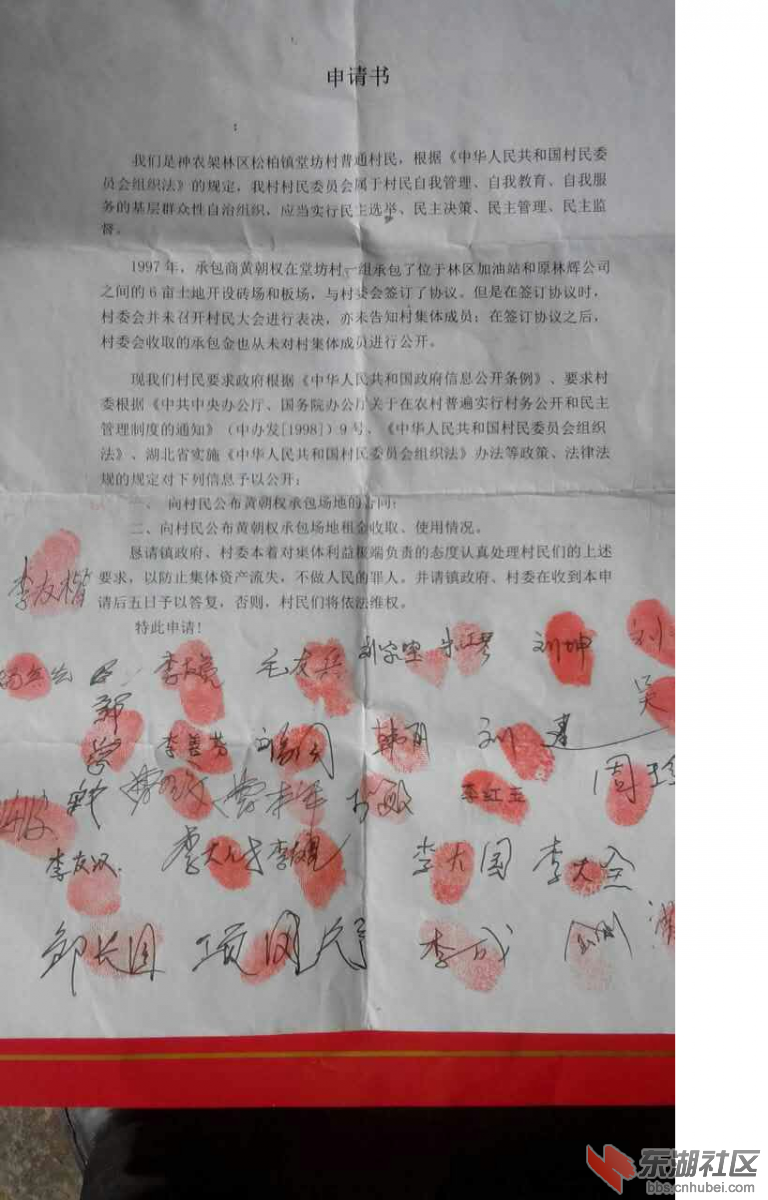 申请书
：
我们是神农架林区松柏镇堂坊村普通村民，根据《中华人民共和国村民委
员会组织法》的规定，我村村民委员会属于村民自我管理、自我教育、自我服
务的基层群众性自治组织、应当实行民主选举、民主决策、民主管理、民主监
督。
1997年，承包商黄朝权在堂坊村一组承包了位于林区加油站和原林辉公司
之间的6亩土地开设砖场和板场，与村委会签订了协议。但是在签订协议时，
村委会并未召开村民大会进行表决，亦未告知村集体成员；在签订协议之后，
村委会收取的承包金也从未对村集体成员进行公开。
现我们村民要求政府根据《中华人民共和国政府信息公开条例》、要求村
委根据《中共中央办公厅、国务院办公厅关于在农村普遍实行村务公开和民主
管理制度的通知》（中办发[1998]）9号、《中华人民共和国村民委员会组织
法》、湖北省实施《中华人民共和国村民委员会组织法》办法等政策、法律法
规的规定对下列信息予以公开：
一、 向村民公布黄朝权承包场地的合同；
二、向村民公布黄朝权承包场地租金收取、使用情况。
恳请镇政府、村委本着对集体利益极端负责的态度认真处理村民们的上述
要求，以防止集体资产流失，不做人民的罪人。并请镇政府、村委在收到本申
请后五日予以答复，否则，村民们将依法维权。
特此申请！
李友楷
毛友兵 刘坤 刘
吴
李善芳 韩明 刘
李红玉 周珍
李友汉 李大国 李大全
邹长国 李成
东湖社区
bbs.cnhubei.com